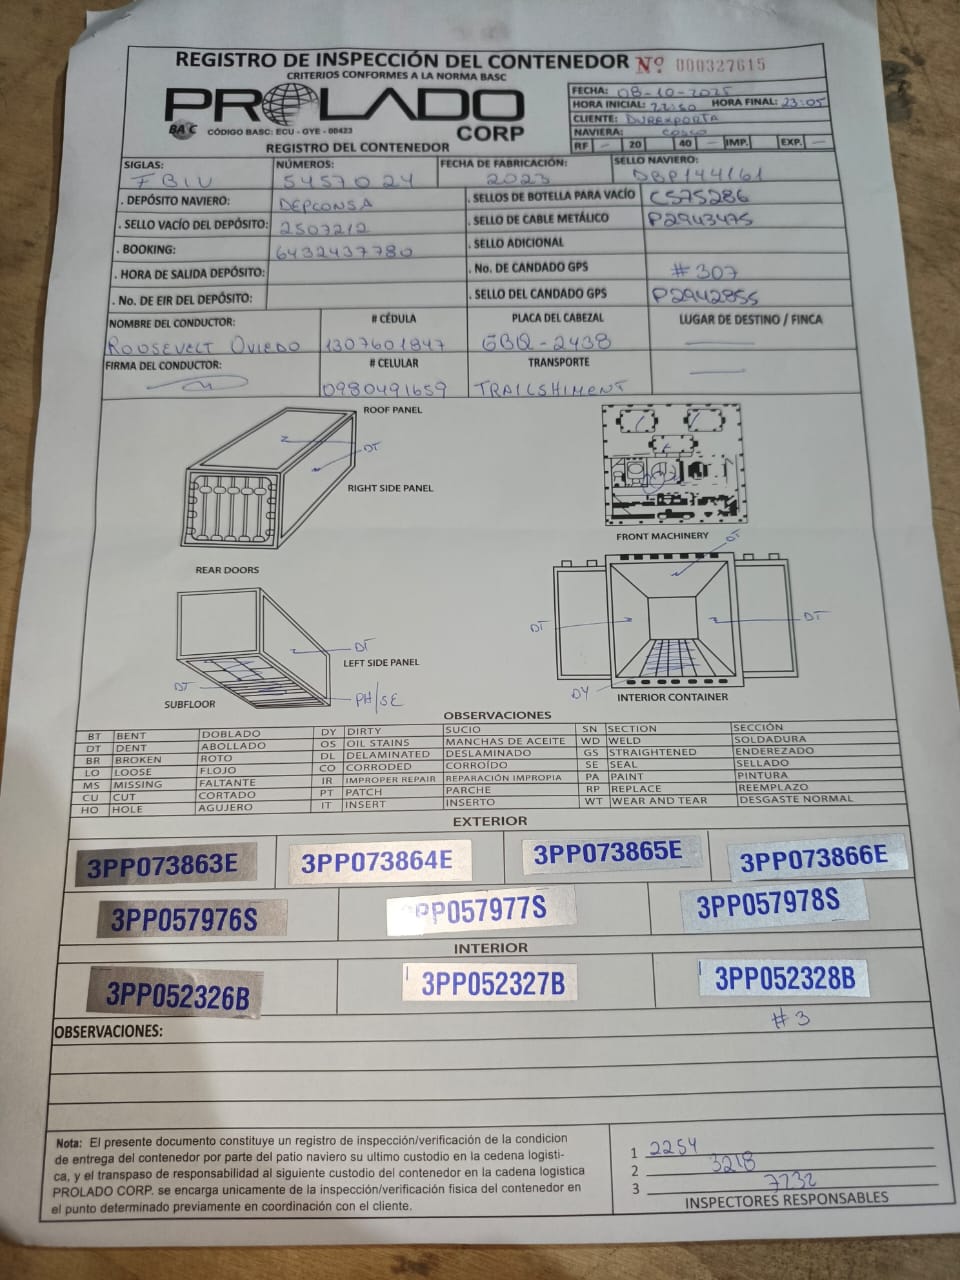 REGISTRO DE INSPECCIÓN DEL CONTENEDOR Nº 000327615
CRITERIOS CONFORMES A LA NORMA BASC
PROLADO
CORP
BASC CÓDIGO BASC: ECU - GYE - 00423
FECHA: 08-10-2025
HORA INICIAL: 22:50 HORA FINAL: 23:05
CLIENTE: DUREXPORTA
NAVIERA: COSCO
RF - 20 40 - IMP. EXP. -
REGISTRO DEL CONTENEDOR
SIGLAS: NÚMEROS: FECHA DE FABRICACIÓN: SELLO NAVIERO:
FBIU 5457024 2023 DBP144161
. DEPÓSITO NAVIERO: DEPCONSA . SELLOS DE BOTELLA PARA VACÍO CS75286
. SELLO VACÍO DEL DEPÓSITO: 2507212 . SELLO DE CABLE METÁLICO P2943475
. BOOKING: 6432437780 . SELLO ADICIONAL
. HORA DE SALIDA DEPÓSITO: . No. DE CANDADO GPS #307
. No. DE EIR DEL DEPÓSITO: . SELLO DEL CANDADO GPS P2942855
NOMBRE DEL CONDUCTOR: # CÉDULA PLACA DEL CABEZAL LUGAR DE DESTINO / FINCA
ROOSEVELT OVIEDO 1307601847 GBQ-2438
FIRMA DEL CONDUCTOR: # CELULAR TRANSPORTE
0980491659 TRAILSHIMENT
ROOF PANEL
DT
RIGHT SIDE PANEL
REAR DOORS
FRONT MACHINERY
DT
DT
DT
DT
LEFT SIDE PANEL
DT
SUBFLOOR
PH/SE
DY
INTERIOR CONTAINER
OBSERVACIONES
BT BENT DOBLADO DY DIRTY SUCIO SN SECTION SECCIÓN
DT DENT ABOLLADO OS OIL STAINS MANCHAS DE ACEITE WD WELD SOLDADURA
BR BROKEN ROTO DL DELAMINATED DESLAMINADO GS STRAIGHTENED ENDEREZADO
LO LOOSE FLOJO CO CORRODED CORROÍDO SE SEAL SELLADO
MS MISSING FALTANTE IR IMPROPER REPAIR REPARACIÓN IMPROPIA PA PAINT PINTURA
CU CUT CORTADO PT PATCH PARCHE RP REPLACE REEMPLAZO
HO HOLE AGUJERO IT INSERT INSERTO WT WEAR AND TEAR DESGASTE NORMAL
EXTERIOR
3PP073863E 3PP073864E 3PP073865E 3PP073866E
3PP057976S PP057977S 3PP057978S
INTERIOR
3PP052326B 3PP052327B 3PP052328B
#3
OBSERVACIONES:
Nota: El presente documento constituye un registro de inspección/verificación de la condicion
de entrega del contenedor por parte del patio naviero su ultimo custodio en la cedena logisti-
ca, y el transpaso de responsabilidad al siguiente custodio del contenedor en la cadena logistica
PROLADO CORP. se encarga unicamente de la inspección/verificación fisica del contenedor en
el punto determinado previamente en coordinación con el cliente.
1 2254
2 3218
3 7232
INSPECTORES RESPONSABLES